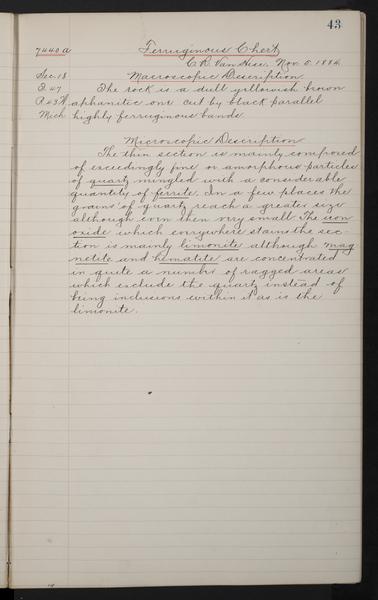 43
7440 a Ferruginous Chert
C. R. Van Hise, Nov. 5, 1884.
Sec. 18 Macroscopic Description
T. 47 The rock is a dull yellowish brown
R. 43 W. aphanitic one cut by black parallel
Mich highly ferruginous bands.
Microscopic Description
The thin section is mainly composed
of exceedingly fine or amorphous particles
of quartz mingled with a considerable
quantity of ferrite. In a few places the
grains of quartz reach a greater size
although even then very small. The iron
oxide which everywhere stains the sec-
tion is mainly limonite although mag
netite and hematite are concentrated
in quite a number of ragged areas
which exclude the quartz instead of
being inclusions within it as is the
limonite.